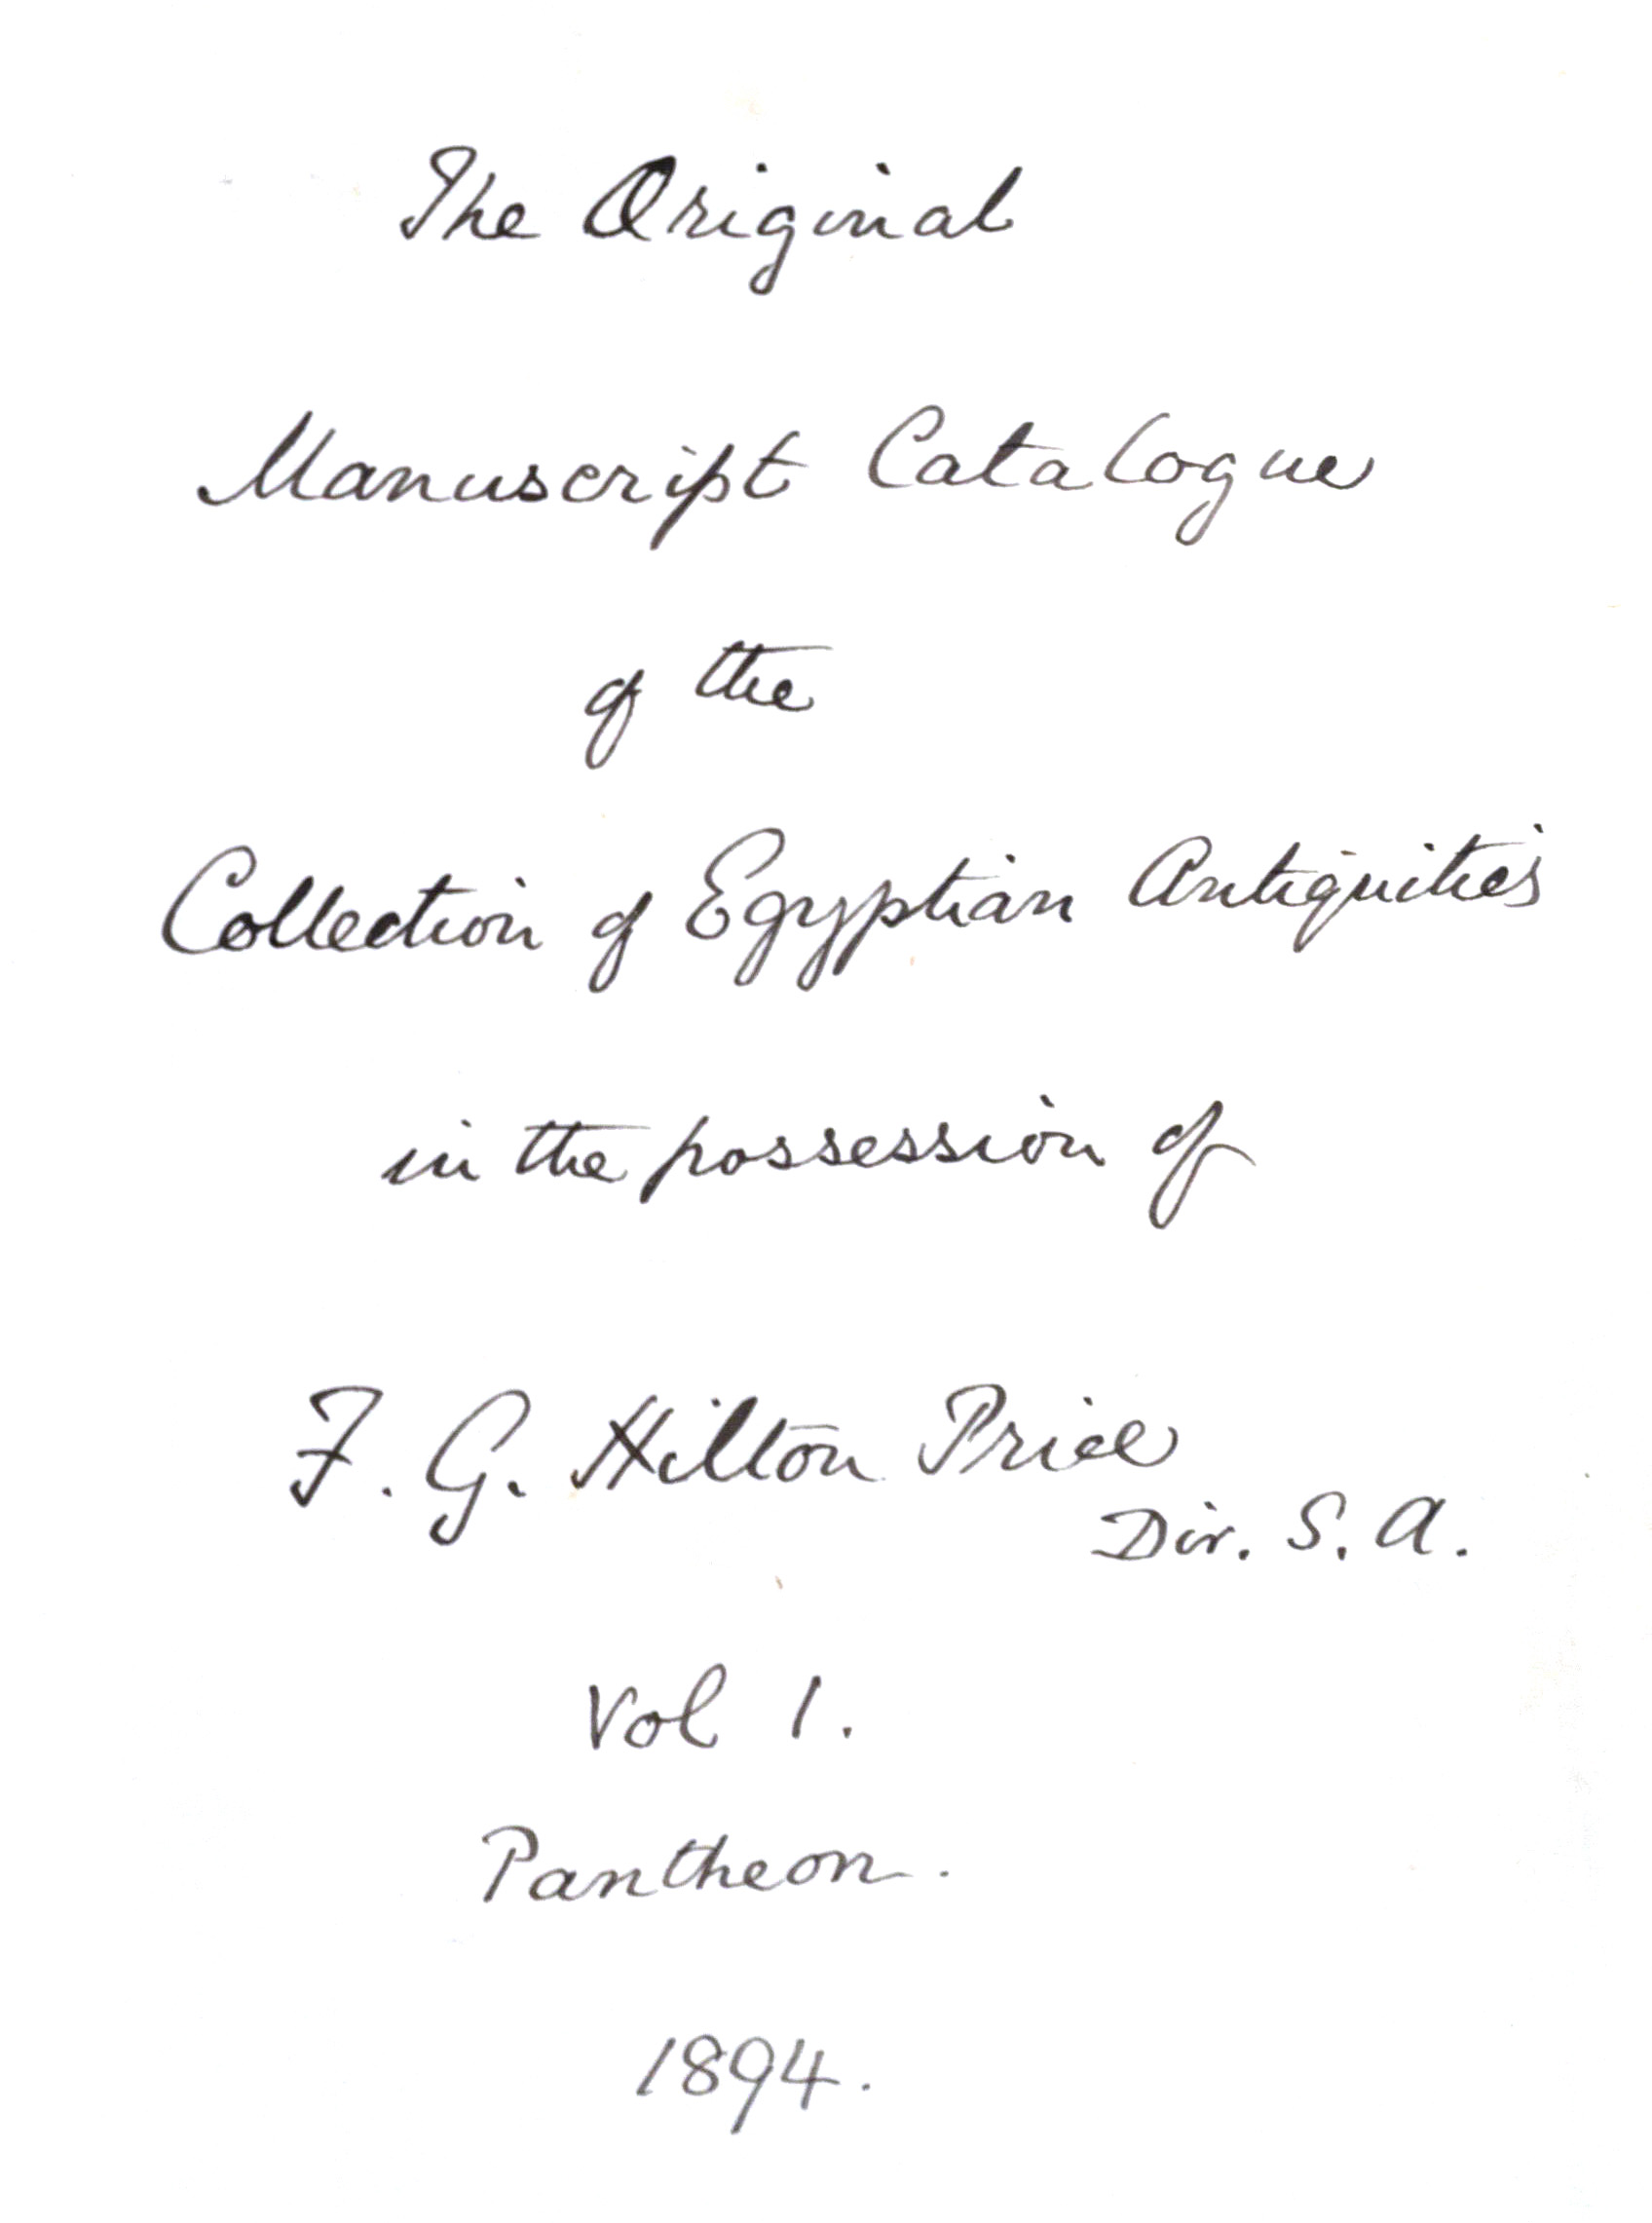 The Original
Manuscript Catalogue
of the
Collection of Egyptian Antiquities
in the possession of
F. G. Hilton Price
Dir. S. A.
Vol 1.
Pantheon.
1894.